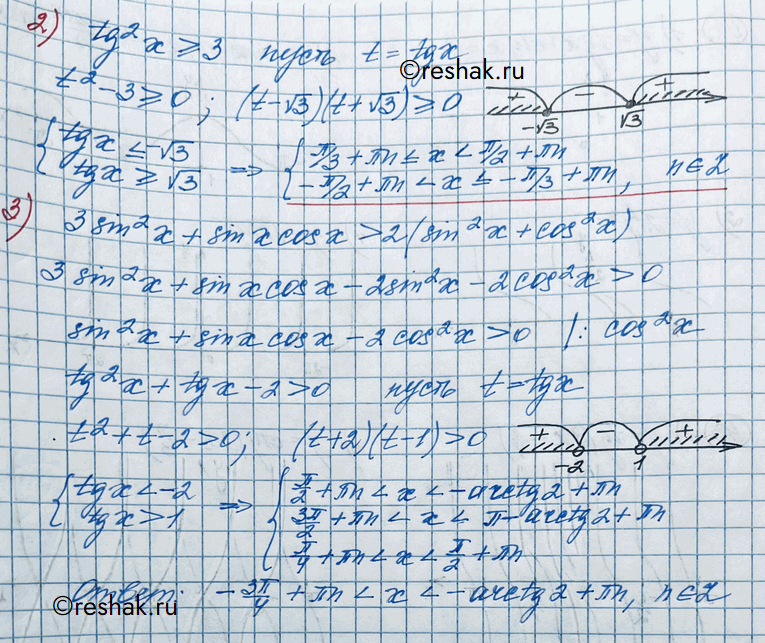 2) tg²x ≥ 3 пусть t = tgx
©reshak.ru
t² - 3 ≥ 0 ; (t-√3)(t+√3) ≥ 0
+ - +
-√3 √3
{ tgx ≤ -√3
tgx ≥ √3 ⇒ { π/3 + πn ≤ x < π/2 + πn
-π/2 + πn < x ≤ -π/3 + πn, n∈Z
3) 3 sin²x + sinx cosx > 2(sin²x + cos²x)
3 sin²x + sinx cosx - 2sin²x - 2cos²x > 0
sin²x + sinx cosx - 2cos²x > 0 |: cos²x
tg²x + tgx - 2 > 0 пусть t = tgx
t² + t - 2 > 0; (t+2)(t-1) > 0
+ - +
-2 1
{ tgx < -2
tgx > 1 ⇒ { π/2 + πn < x < -arctg2 + πn
3π/2 + πn < x < π - arctg2 + πn
π/4 + πn < x < π/2 + πn
Ответ: -3π/4 + πn < x < -arctg2 + πn, n∈Z
©reshak.ru